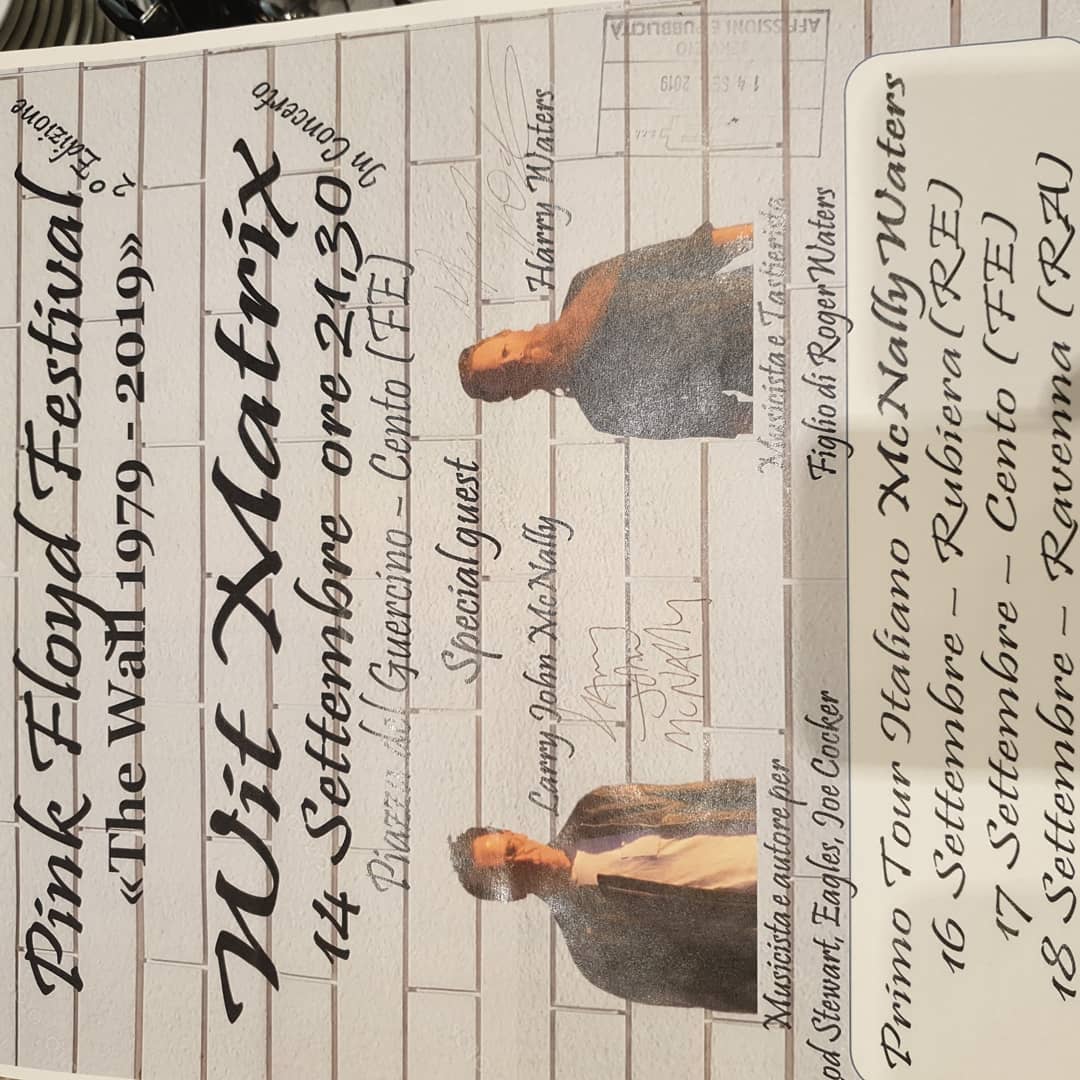 Pink Floyd Festival
2° Edizione
«The Wall 1979 - 2019»
Wit Matrix
In Concerto
14 Settembre ore 21,30
Piazza del Guercino - Cento (FE)
Special guest
Larry John McNally
Harry Waters
LARRY
JOHN
MCNALLY
AFFISSIONI E PUBBLICITÀ
SERVIZIO
14 SET. 2019
Musicista e autore per
od Stewart, Eagles, Joe Cocker
Musicista e Tastierista
Figlio di Roger Waters
Primo Tour Italiano McNallyWaters
16 Settembre - Rubiera (RE)
17 Settembre - Cento (FE)
18 Settembre - Ravenna (RA)